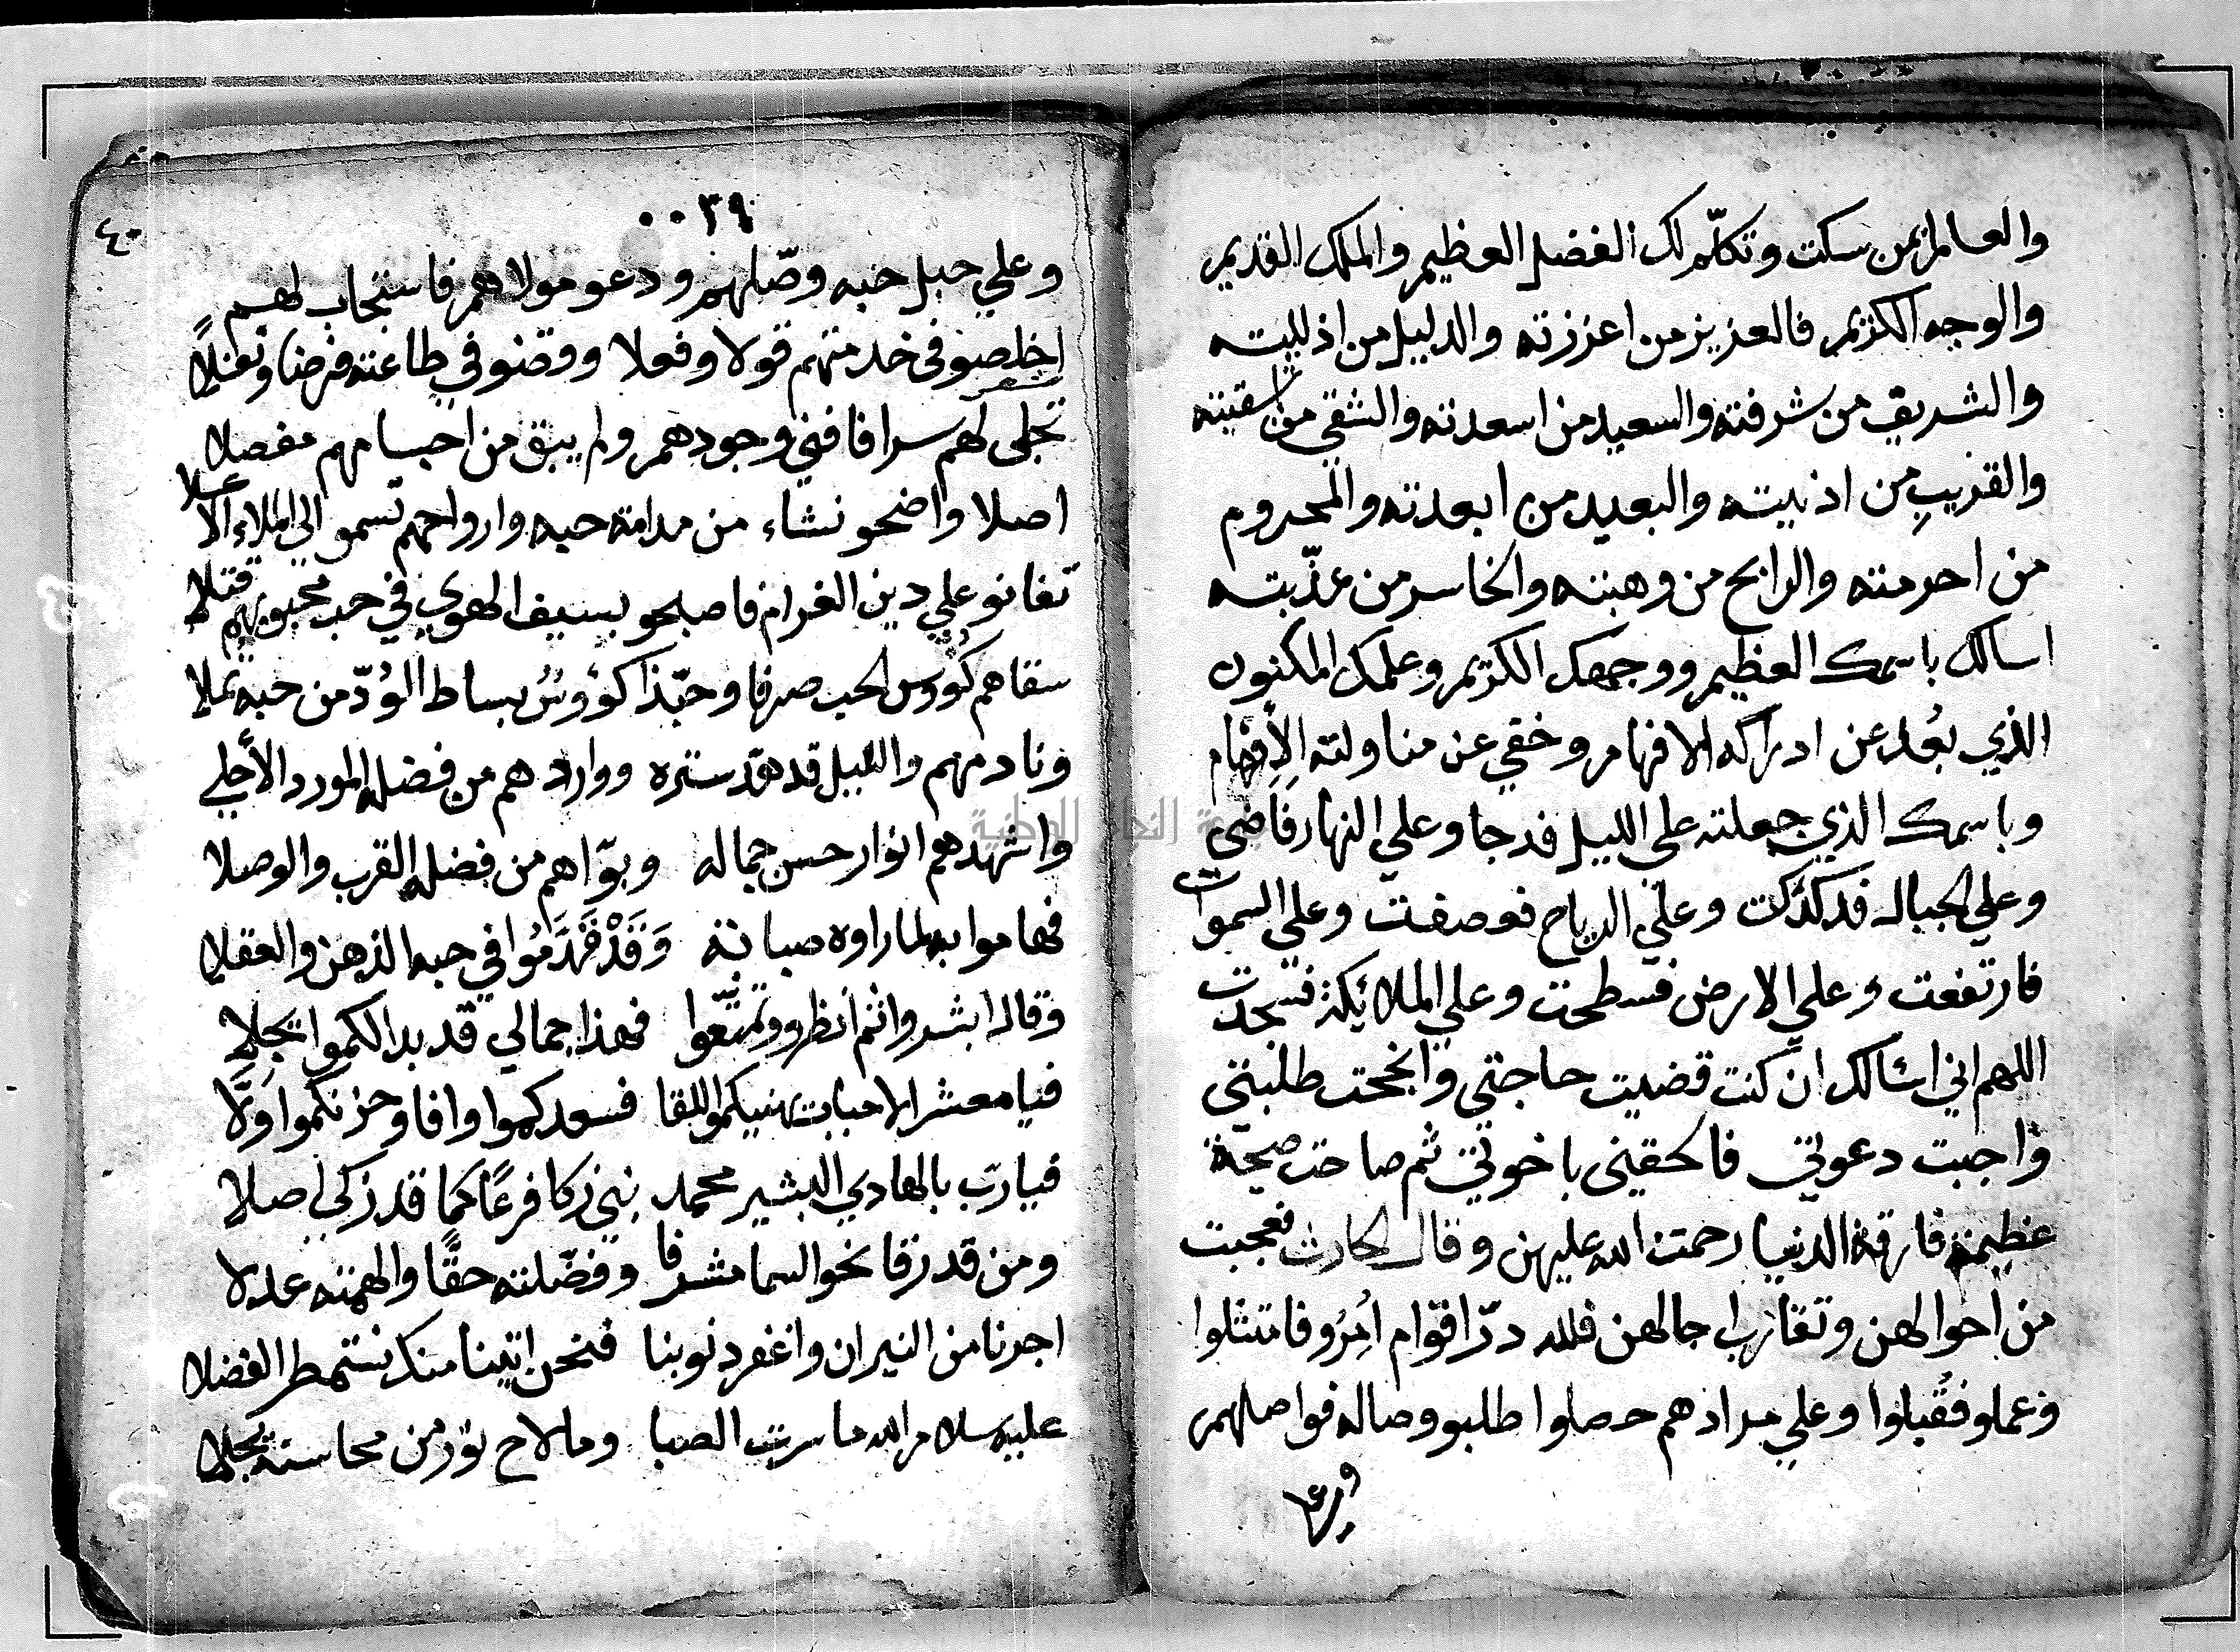 والعالم بمن سكت وتكلّم لك الفضل العظيم والملك القديم
والوجه الكريم فالعزيز من اعززته والدليل من اذلليته
والشريف من شرفته والسعيد من اسعدته والشقي من اشقيته
والقريب من اذنيته والبعيد من ابعدته والمحروم
من احرمته والرابح من وهبته والخاسر من عذّبته
اسالك باسمك العظيم ووجهك الكريم وعلمك المكنون
الذي بعُد عن ادراكه الافهام وخفي عن مناولته الأفهام
وباسمك الذي جعلته علي الليل فدجا وعلي النهار فاضى
وعلي الجبال فدكدكت وعلي الرياح فعصفت وعلي السموات
فارتفعت وعلي الارض فسطحت وعلي الملائكة فسجدت
اللهم اني اسالك ان كنت قضيت حاجتي وانجحت طلبتي
واجبت دعوتي فالحقيني باخوتي ثم صاحت صيحة
عظيمة فارقة الدنيا رحمت الله عليهن وقال الحارث فعجبت
من احوالهن وتقارب اجالهن فلله درّ اقوام اُمِرُو فامتثلوا
وعملو فقُبلوا وعلي مرادهم حصلوا طلبو وصاله فواصلهم
وعلي
٠٠٣٩
٤٠
وعلي حبل حبه وصّلهم ودعو مولاهم فاستجاب لهم
اخلصو في خدمتهم قولا وفعلا ووقفو في طاعته فرضا ونفلًا
شعر
تجلى لهم سرا فافني وجودهم ولم يبق من اجسامهم مفصلا
اصلا واضحو نشاء من مدامة حبه وارواحهم تسمو الي الملاء الاعلا
تفانو علي دين الغرام فاصبحو بسيف الهوي في حب محبوبهم قتلا
سقاهم كُووس الحب صرفا وحبّذا كؤوسُ بساط الوُدّ من حبه تملا
ونادمهم والليل قد هدّ ستره وواردهم من فضله المورد الأحلي
واشهدهم انوار حسن جماله وبوّاهم من فضله القرب والوصلا
فهاموا به لما راوه صبابة وَقَدْ في حبه الذهن والعقلا
وقال ابشروا ثم انظرو وتمتّعوا فهذا جمالي قد بدا لكموا يجلا
فيا معشر الاحباب يهنيكموا اللقا فسعدكموا وافا وحزنكموا وَلّا
فيارب بالهادي البشير محمد نبي زكا فرعًا كما قد زكي اصلا
ومن قد رقا نحو السما مشرفا وفضّلته حقًّا والهمته عدلا
اجرنا من النيران واغفر ذنوبنا فنحن اتينا منك نستمطر الفضلا
عليه سلام الله ما سرت الصبا وما لاح نور من محاسنه يجلا